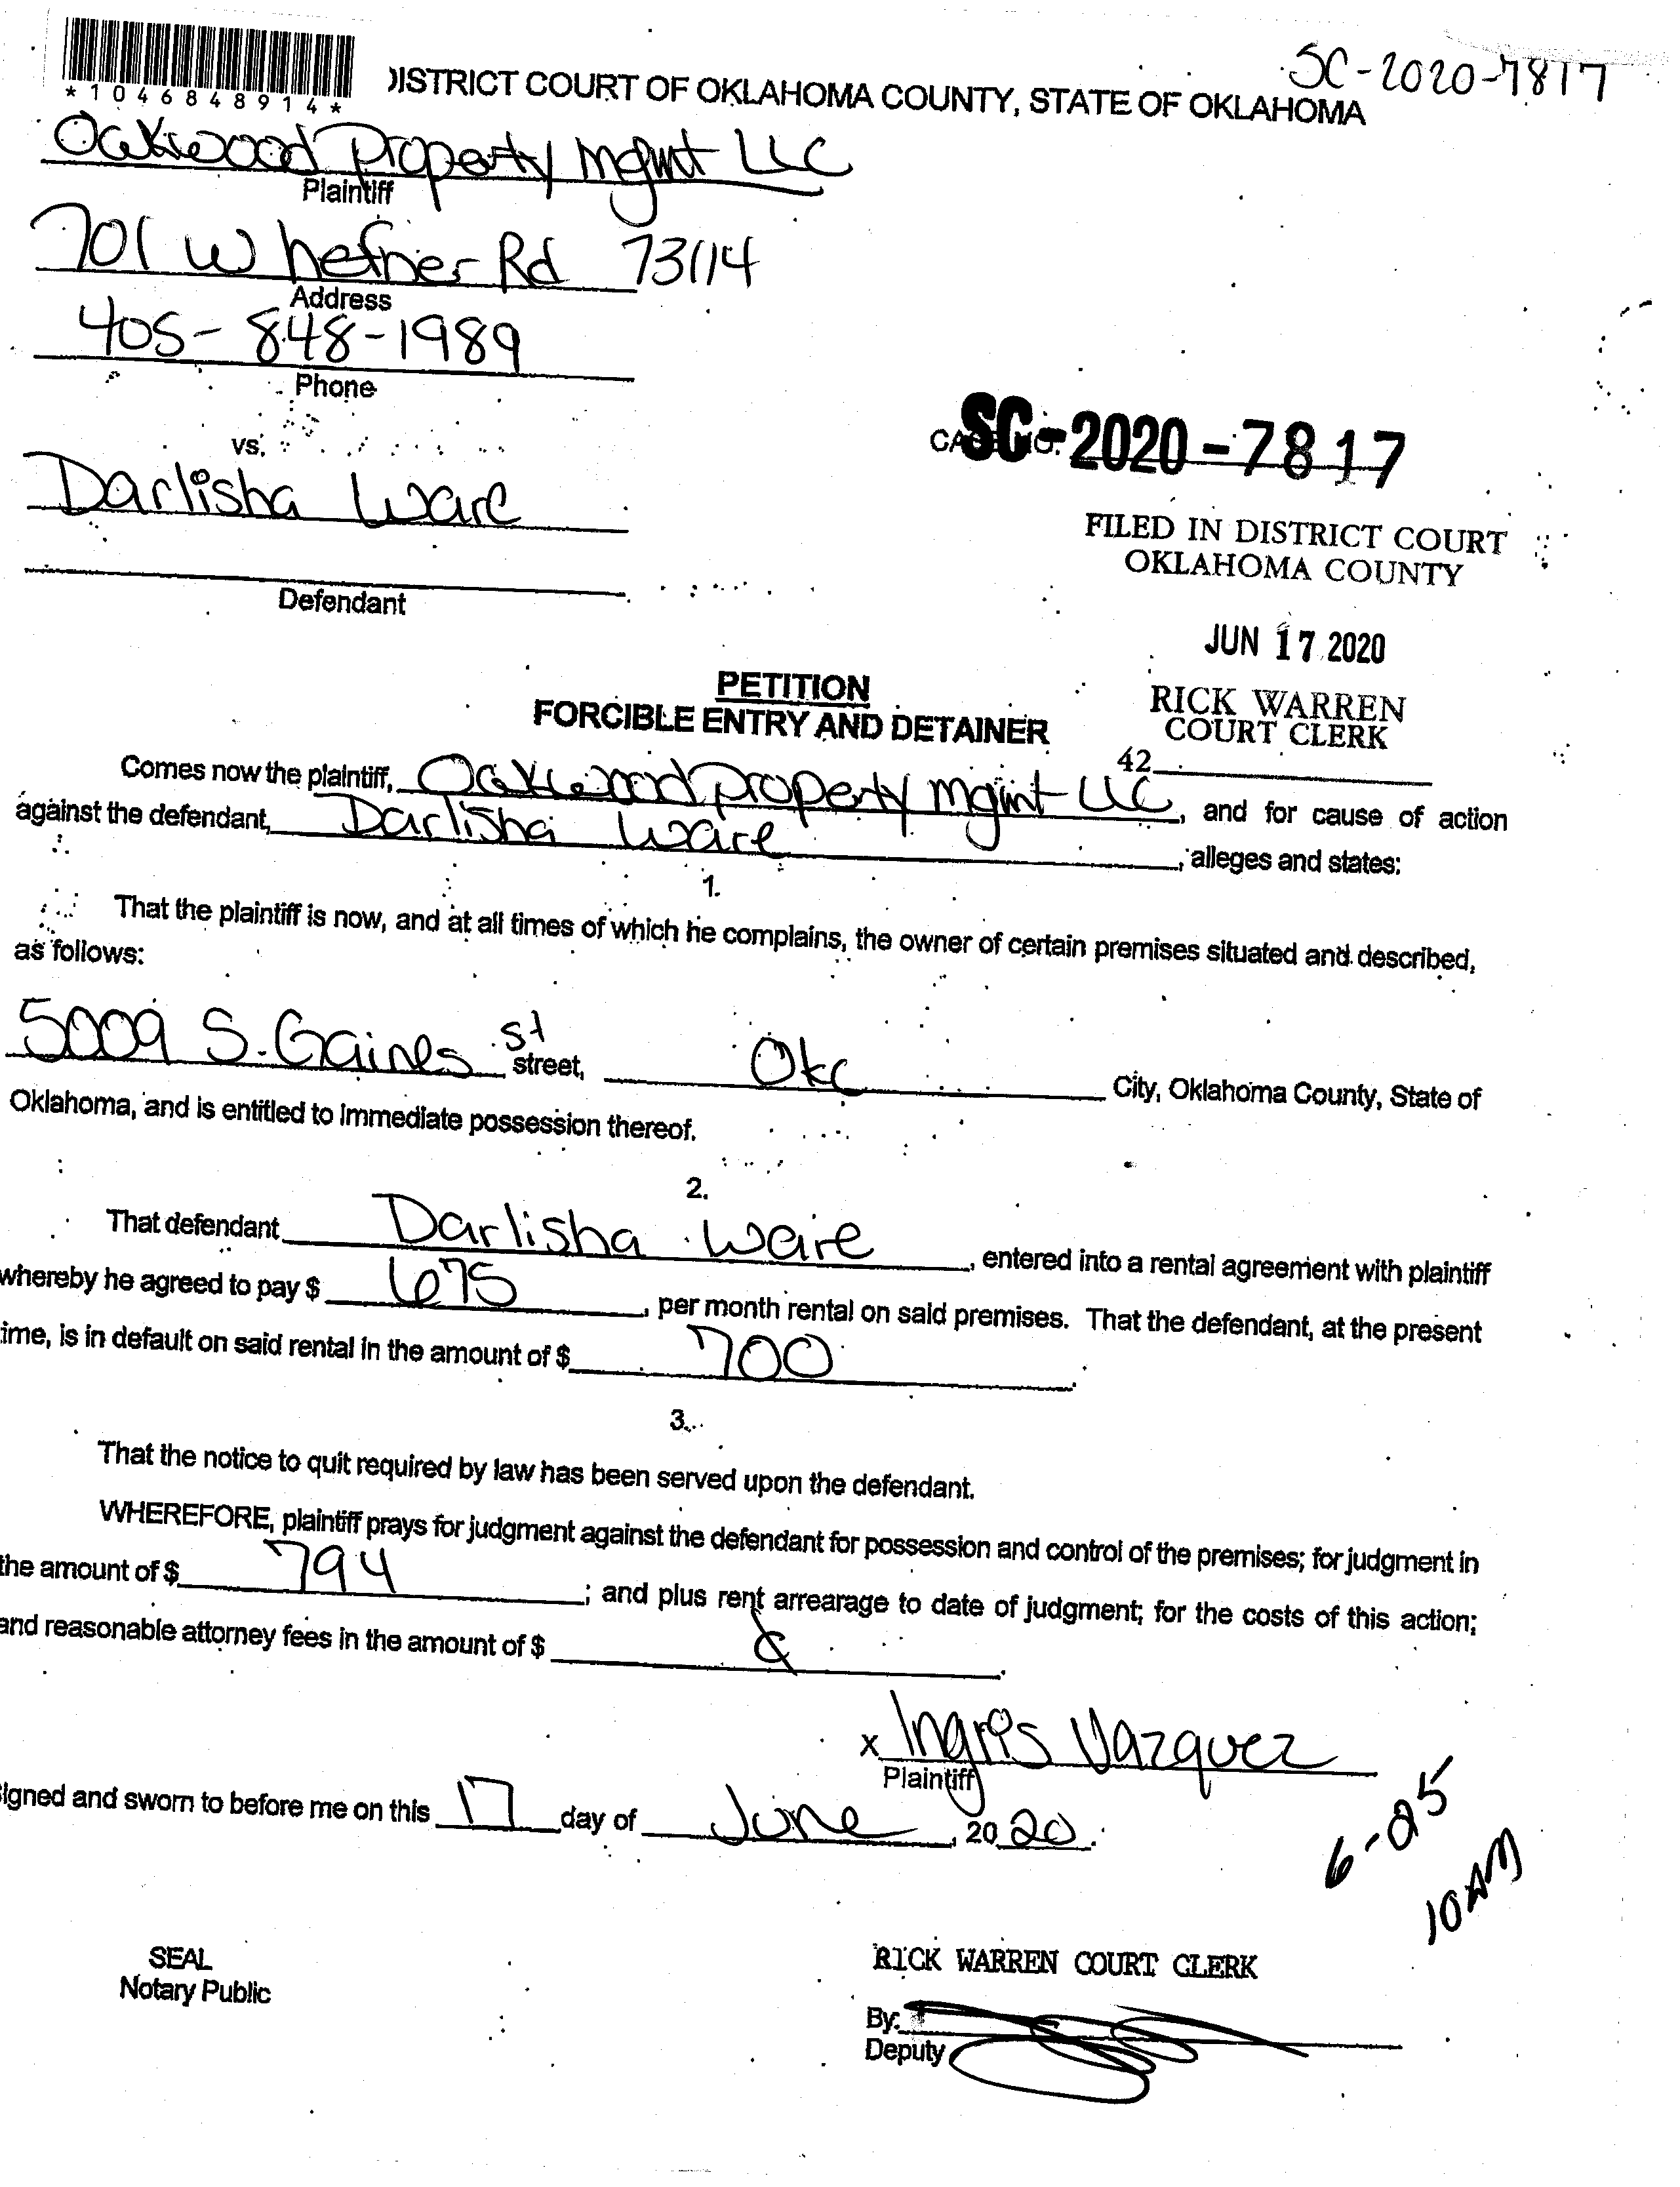 SC-2020-7817
*1046848914*
DISTRICT COURT OF OKLAHOMA COUNTY, STATE OF OKLAHOMA
Oakwood Property Mgmt LLC
Plaintiff
701 W hefner Rd 73114
Address
405-848-1989
Phone
vs.
Darlisha Ware
CASE NO. SC-2020-7817
FILED IN DISTRICT COURT
OKLAHOMA COUNTY
Defendant
JUN 17 2020
PETITION
FORCIBLE ENTRY AND DETAINER
RICK WARREN
COURT CLERK
42
Comes now the plaintiff, Oakwood Property Mgmt LLC, and for cause of action
against the defendant, Darlisha Ware, alleges and states:
1.
That the plaintiff is now, and at all times of which he complains, the owner of certain premises situated and described,
as follows:
5009 S. Gaines st street, Okc City, Oklahoma County, State of
Oklahoma, and is entitled to immediate possession thereof.
2.
That defendant Darlisha Ware, entered into a rental agreement with plaintiff
whereby he agreed to pay $ 675, per month rental on said premises. That the defendant, at the present
ime, is in default on said rental in the amount of $ 700.
3.
That the notice to quit required by law has been served upon the defendant.
WHEREFORE, plaintiff prays for judgment against the defendant for possession and control of the premises; for judgment in
the amount of $ 794; and plus rent arrearage to date of judgment; for the costs of this action;
and reasonable attorney fees in the amount of $
x Ingris Vazquez
Plaintiff
igned and sworn to before me on this 17 day of June, 2020.
6-25
10AM
SEAL
Notary Public
RICK WARREN COURT CLERK
By:
Deputy